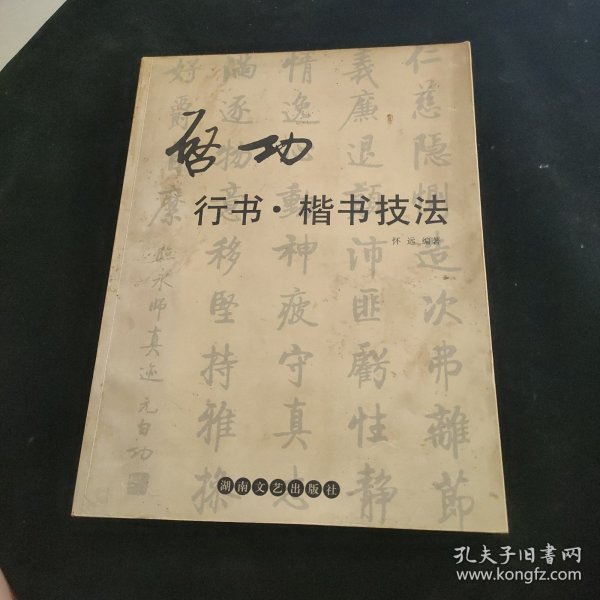 启功
行书·楷书技法
怀远 编著
仁慈隐恻造次弗離節
義廉退顛沛匪虧性静
情逸心動神疲守真志
滿逐物意移堅持雅操
好爵自縻
臨永師真迹 元白功
湖南文艺出版社
孔夫子旧书网
www.kongfz.com